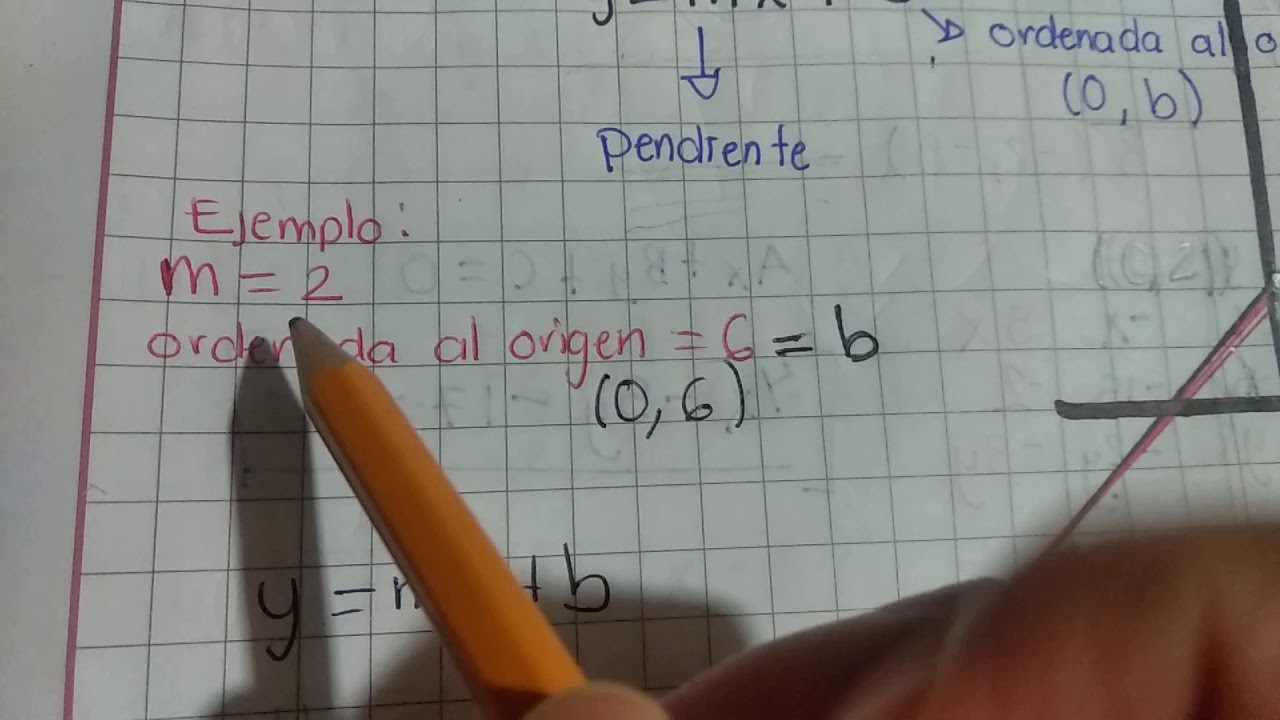 ordenada al o
(0, b)
Pendiente
Ejemplo:
m = 2
ordenada al origen = 6 = b
(0, 6)
y = + b